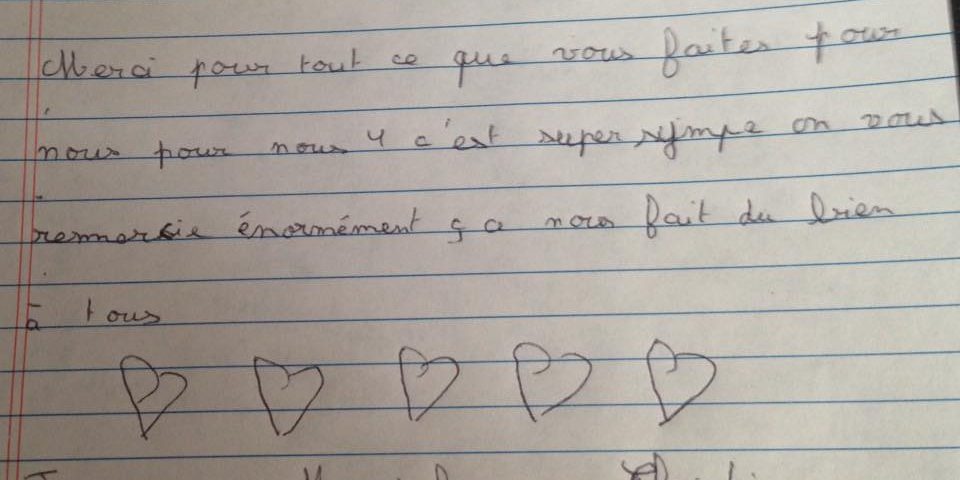 Merci pour tout ce que vous faites pour
nous pour nous 4 c'est super sympa on vous
remmorsie énormément ça nous fait du bien
à tous